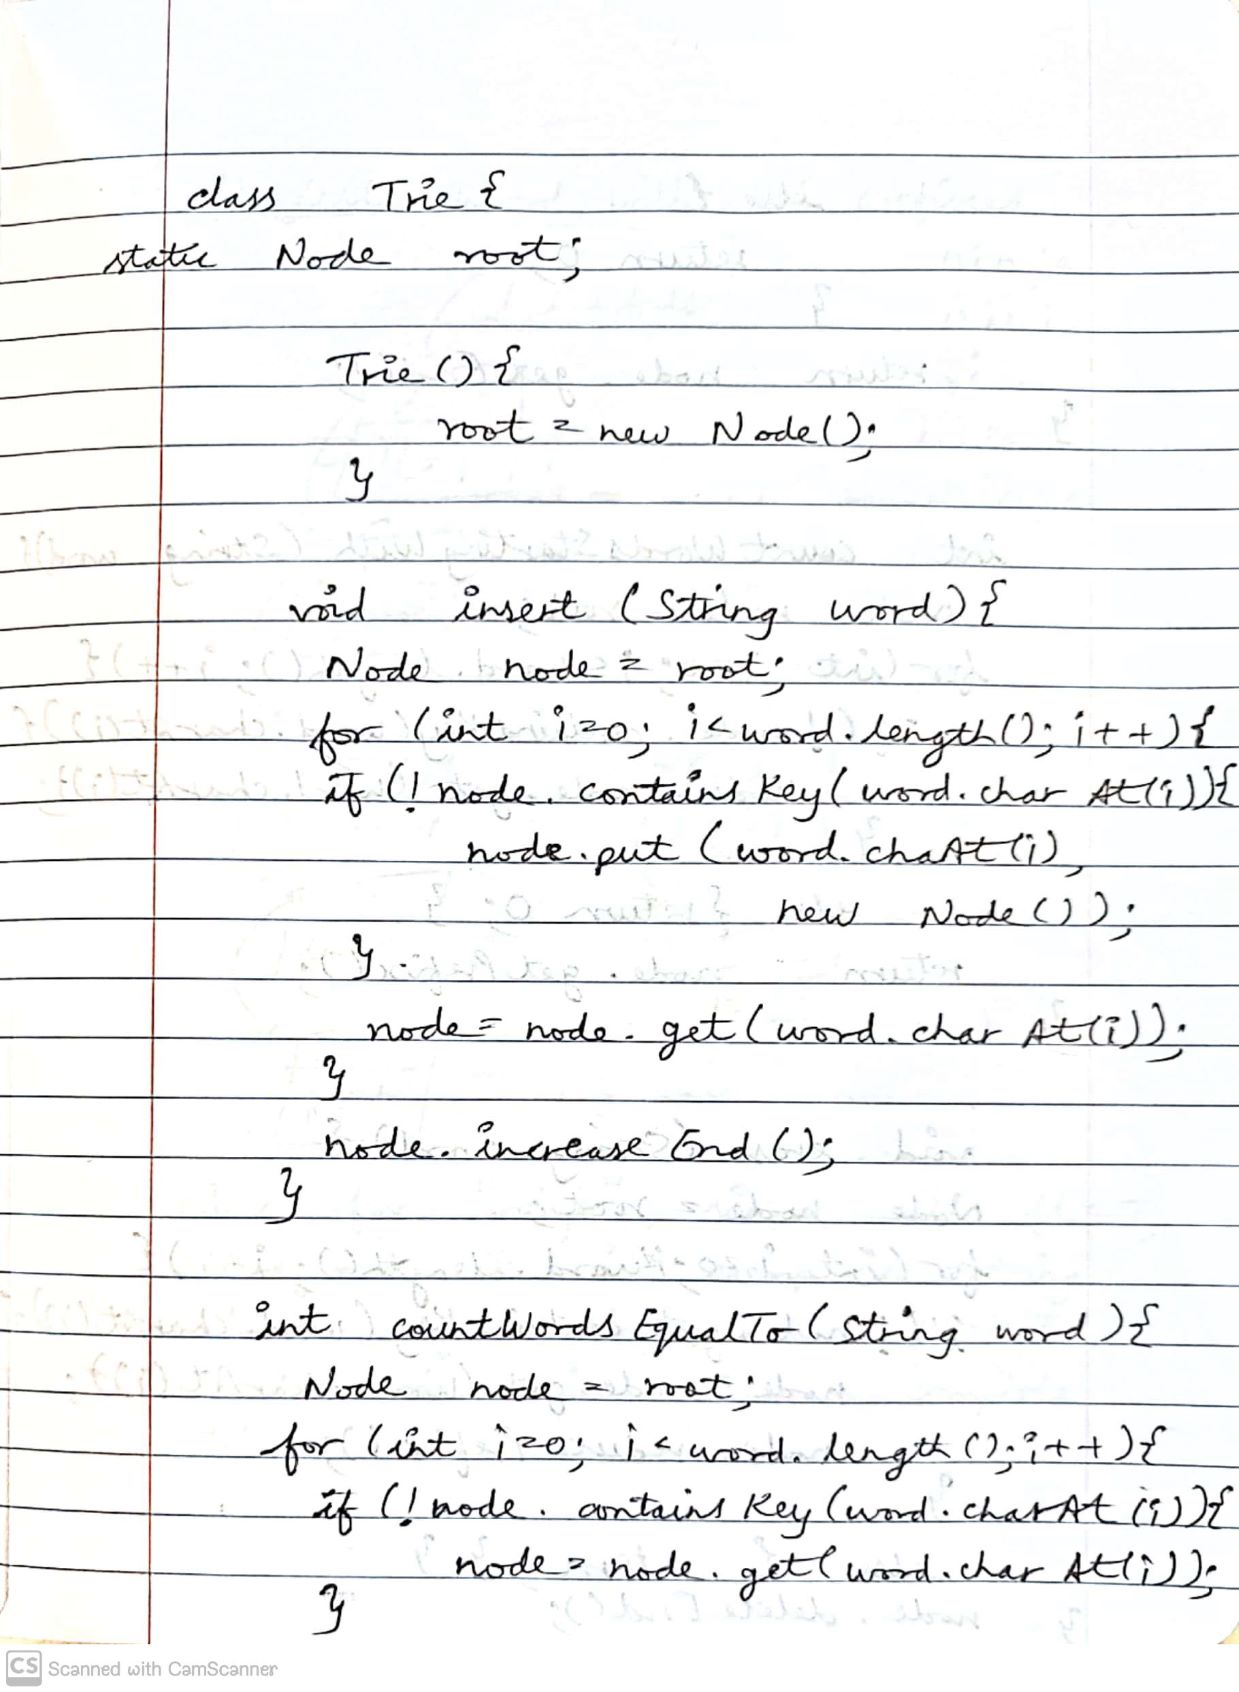 class Trie {
static Node root;
Trie () {
root = new Node();
}
void insert (String word) {
Node node = root;
for (int i=0; i<word.length(); i++) {
if (! node.containsKey(word.charAt(i)){
node.put (word.chaAt(i),
new Node());
}
node = node.get(word.charAt(i));
}
node.increaseEnd();
}
int countWordsEqualTo (String word) {
Node node = root;
for (int i=0; i<word.length(); i++) {
if (! node.containsKey(word.charAt(i)){
node = node.get(word.charAt(i));
}
CS Scanned with CamScanner